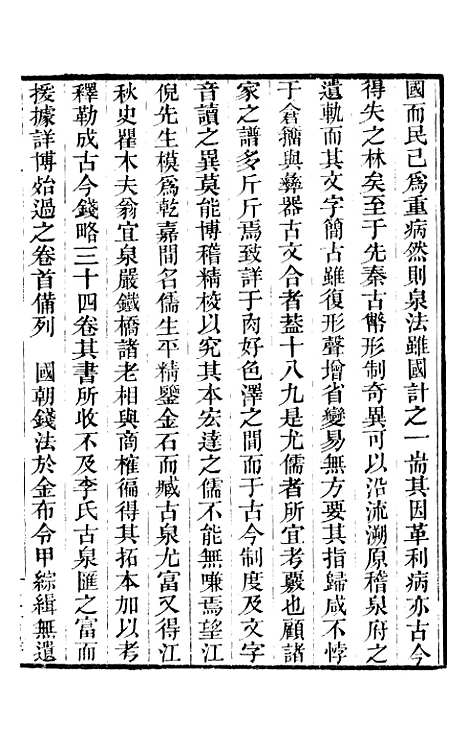 國而民已爲重病然則泉法雖國計之一耑其因革利病亦古今
得失之林矣至于先秦古幣形制奇異可以沿流溯原稽泉府之
遺軌而其文字簡古雖復形聲增省變易無方要其指歸咸不悖
于倉籀與彝器古文合者葢十八九是尤儒者所宜考覈也顧諸
家之譜多斤斤焉致詳于肉好色澤之閒而于古今制度及文字
音讀之異莫能博稽精校以究其本宏達之儒不能無嗛焉望江
倪先生模爲乾嘉閒名儒生平精鑒金石而臧古泉尤富又得江
秋史瞿木夫翁宜泉嚴鐵橋諸老相與商榷徧得其拓本加以考
釋勒成古今錢略三十四卷其書所收不及李氏古泉匯之富而
援據詳博殆過之卷首備列　國朝錢法於金布令甲綜緝無遺